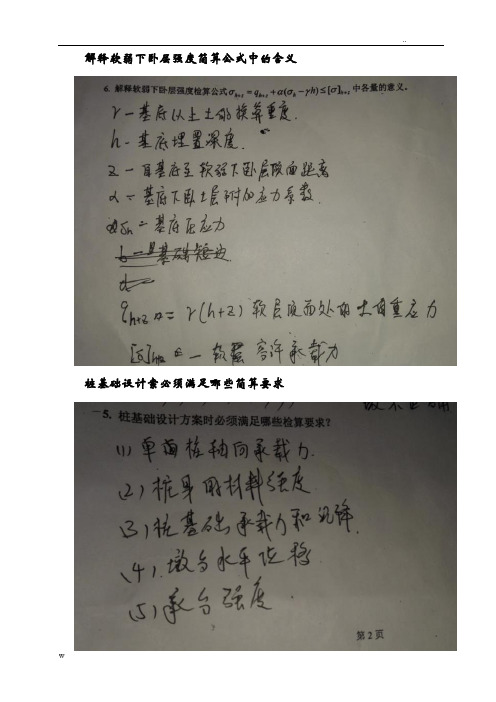 ..
解释软弱下卧层强度简算公式中的含义
6. 解释软弱下卧层强度检算公式σh+z = qh+z + α(σh − γh) ≤ [σ]h+z 中各量的意义。
γ — 基底以上土的换算重度.
h — 基底埋置深度.
z — 自基底至软弱下卧层顶面距离
α = 基底下卧土层附加应力系数.
σh = 基底压应力
b — 基础短边
qh+z = γ(h+z) 软层顶面处的土自重应力
[σ]h+z — 软层容许承载力
桩基础设计案必须满足哪些简算要求
5. 桩基础设计方案时必须满足哪些检算要求?
(1) 单桩轴向承载力.
(2) 桩身用材料强度
(3) 桩基础承载力和沉降.
(4). 墩台水平位移
(5) 承台强度.
第2页
w